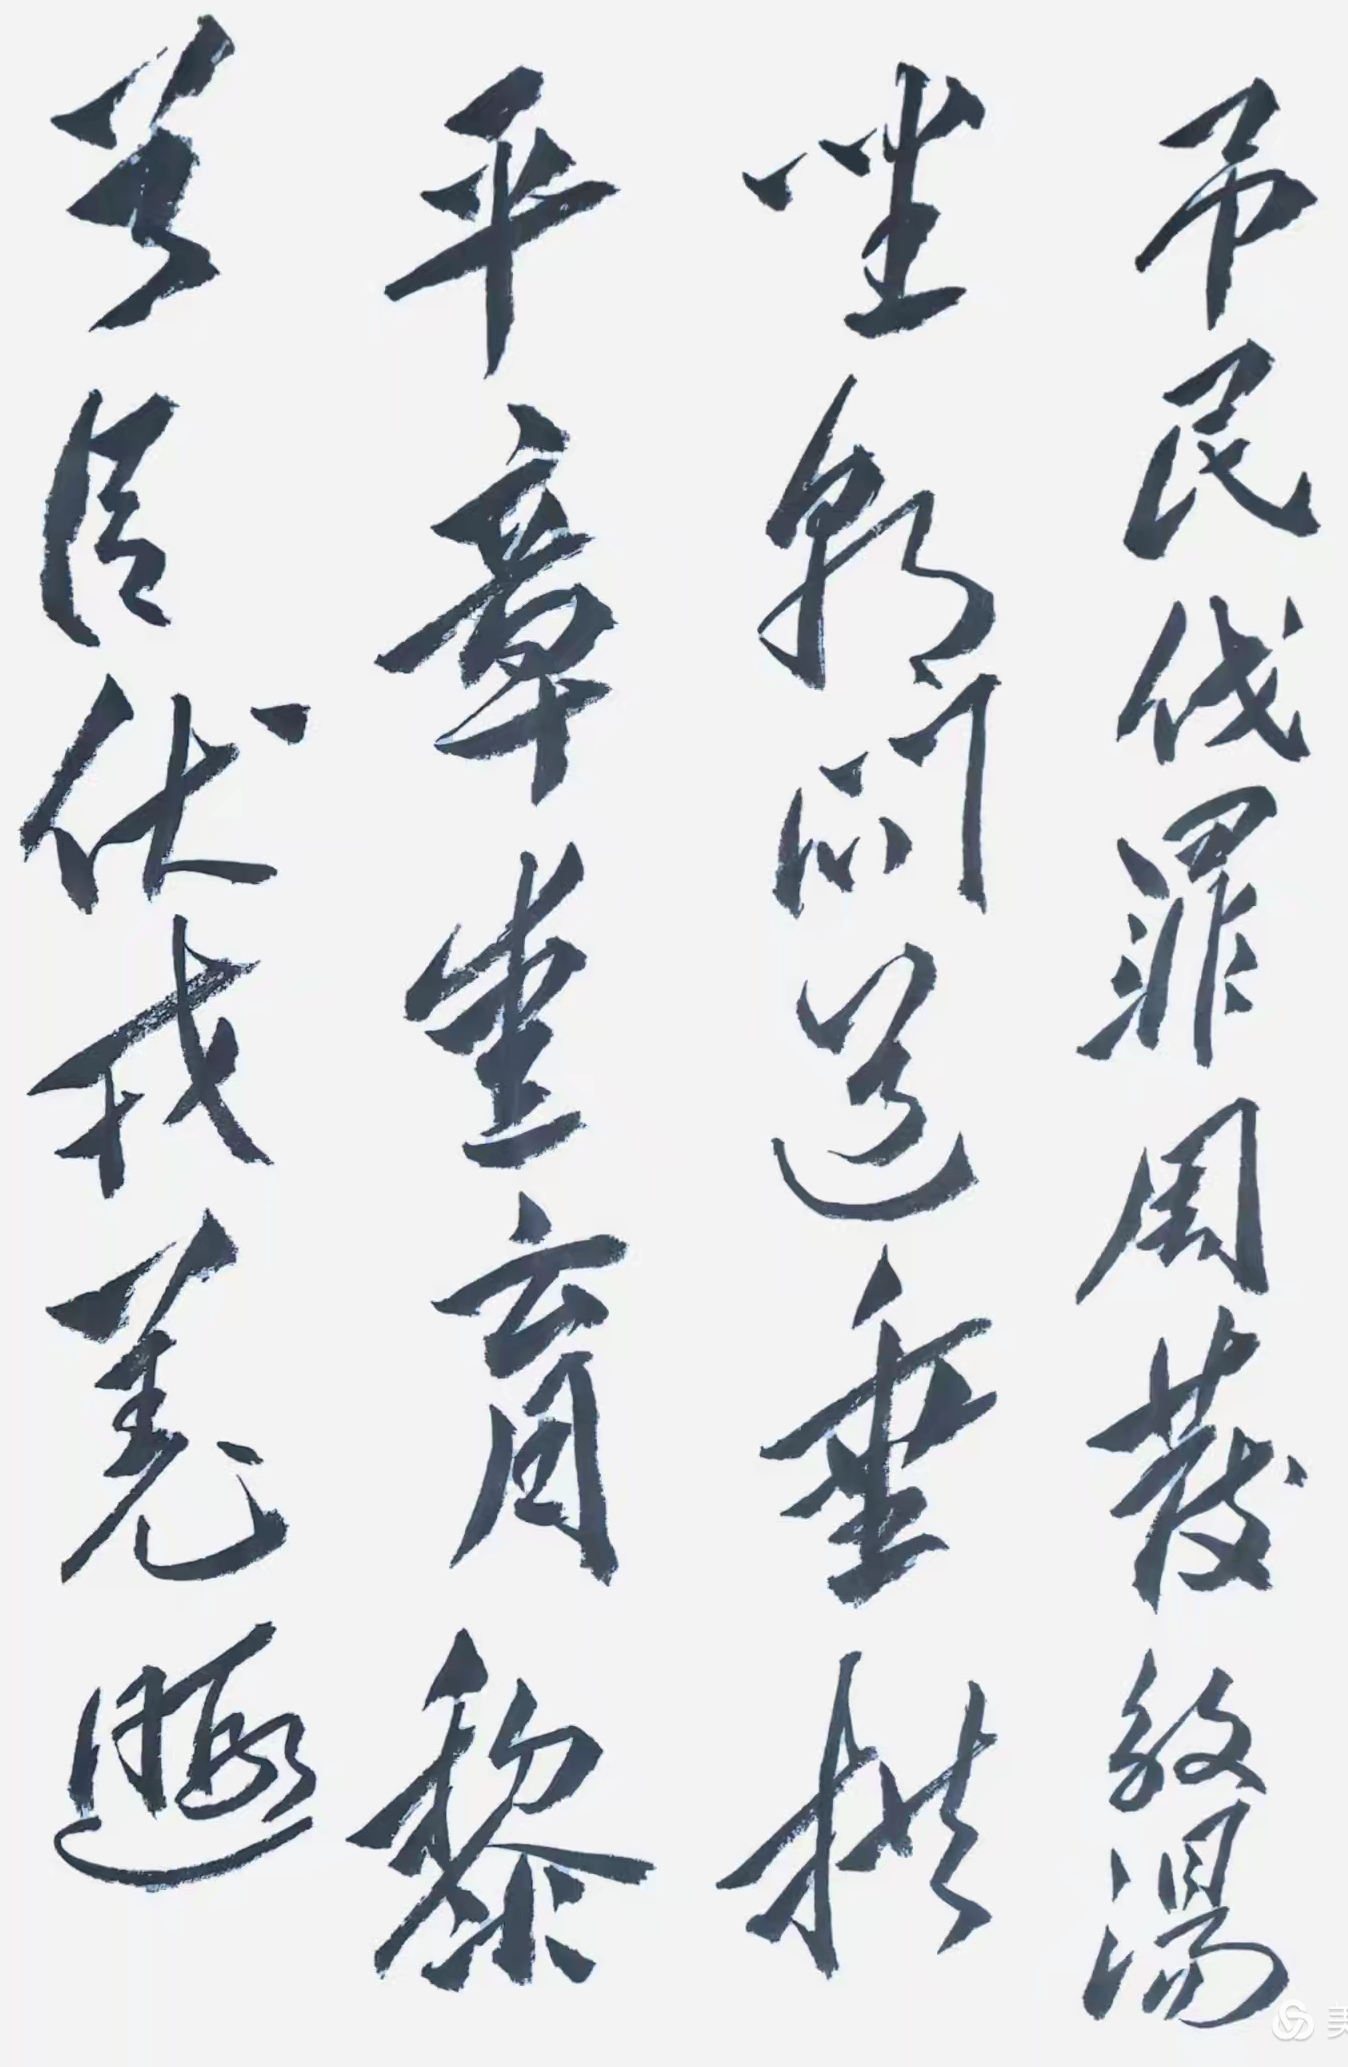 吊民伐罪周發殷湯
坐朝問道垂拱
平章愛育黎
首臣伏戎羌遐
美